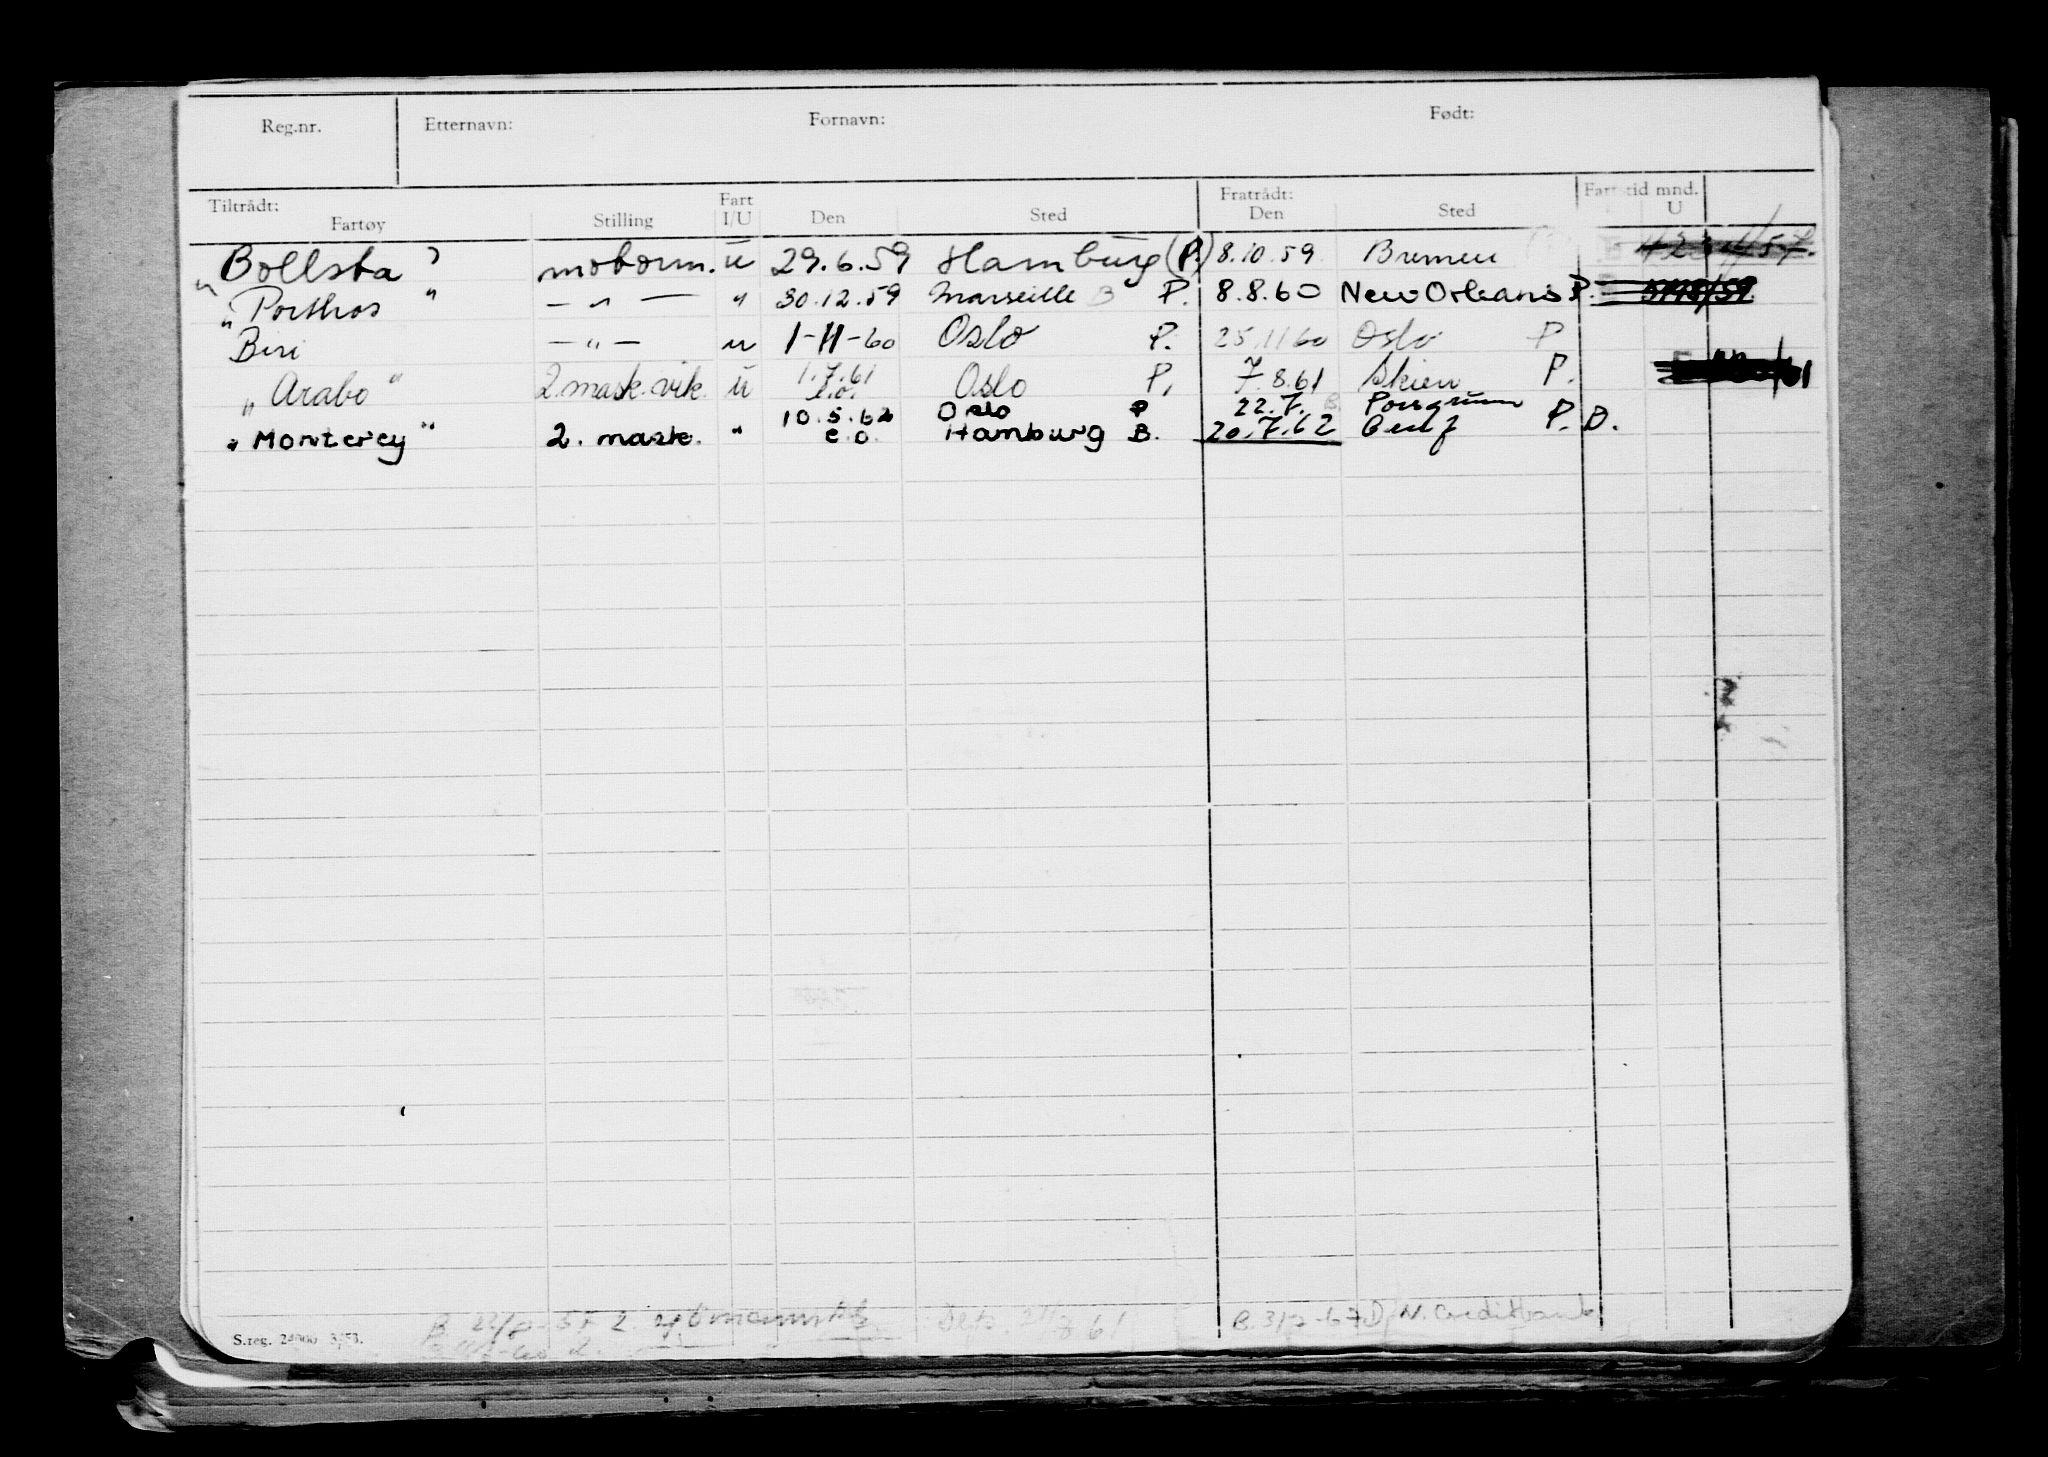 Reg.nr. Etternavn: Fornavn: Født:
Tiltrådt: Fartøy Stilling Fart I/U Den Sted Fratrådt: Den Sted Fartstid mnd. U
"Bollsta" motorm. u 29.6.59 Hamburg (P.) 8.10.59 Bremen
"Porthos" — " — " 30.12.59 Marseille B P. 8.8.60 New Orleans P.
Biri — " — u 1-11-60 Oslo P. 25.11 60 Oslo P
"Arabo" 2. mask. vik. u 1.7.61 Oslo P. 7.8.61 Skien P.
e.o. 22.7. B. Porsgrunn
"Monterey" 2. mask. " 10.5.62 Oslo P 20.7.62 P. D.
e.o. Hamburg B.
B. 3/2-67 D. N. Creditbank
S.reg.